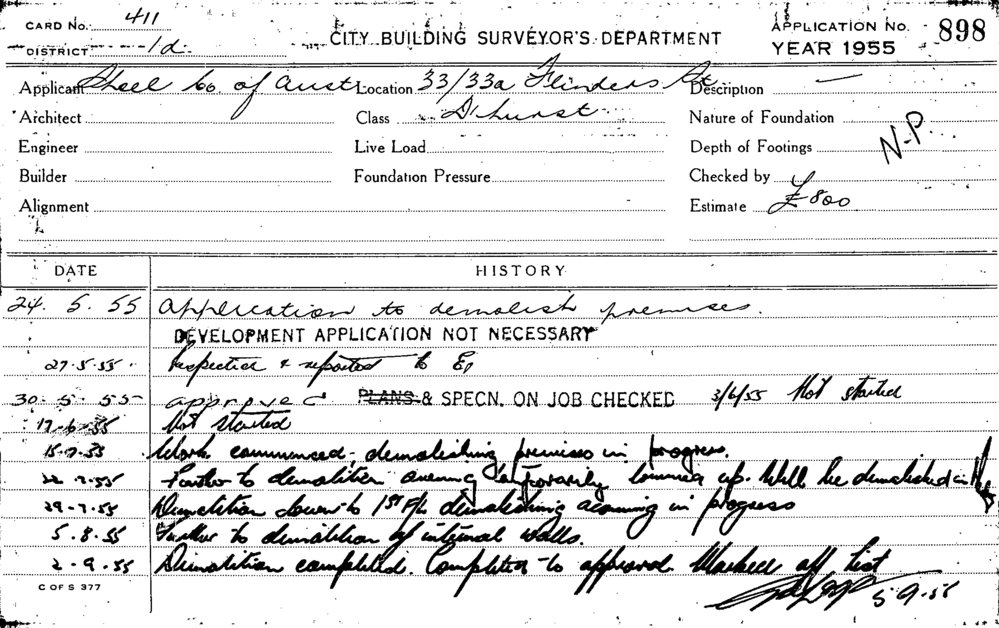 CARD No. 411
DISTRICT 1d.
CITY BUILDING SURVEYOR'S DEPARTMENT
APPLICATION No. 898
YEAR 1955
Applicant Sheel Co of Aust Location 33/33a Flinders St Description —
Architect Class D'hurst Nature of Foundation
Engineer Live Load Depth of Footings N-P
Builder Foundation Pressure Checked by
Alignment Estimate £800
DATE HISTORY
24. 5. 55 Application to demolish premises.
DEVELOPMENT APPLICATION NOT NECESSARY
27.5.55 Inspected & reported to
30. 5. 55 approved PLANS & SPECN. ON JOB CHECKED 3/6/55 Not started
17-6-55 Not started
15.7.55 Work commenced, demolishing premises in progress.
22.7.55 Further to demolition awning temporarily up. Will be demolished in
29-7.55 Demolition down to 1st Flr demolishing awning in progress
5.8.55 Further to demolition of internal walls.
2-9.55 Demolition completed. Completed to approval Marked off List
5.9.55
C OF S 377